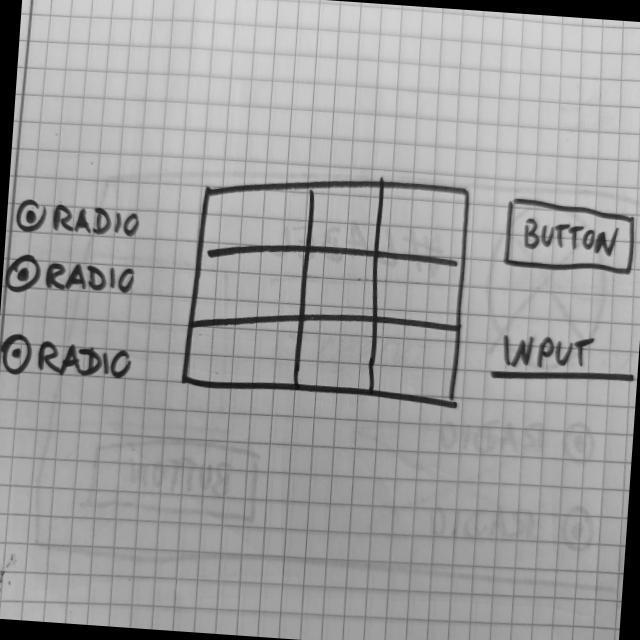 RADIO
RADIO
RADIO
BUTTON
WPUT